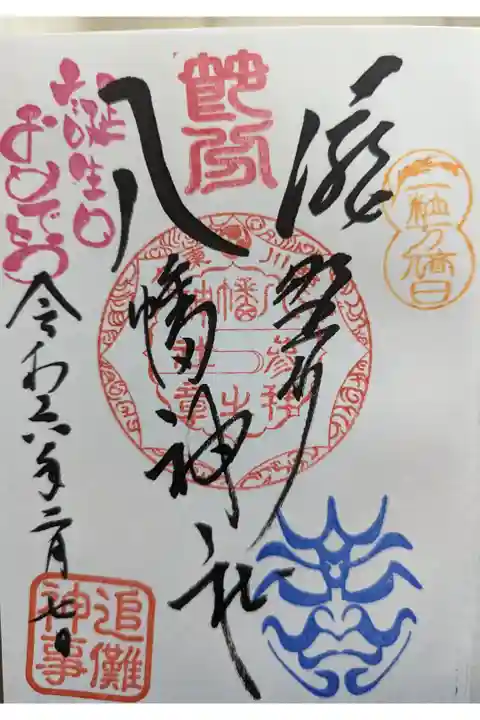 節分
瀧野川
八幡神社
一粒万倍日
お誕生日
おめでとう
令和六年二月七日
追儺
神事